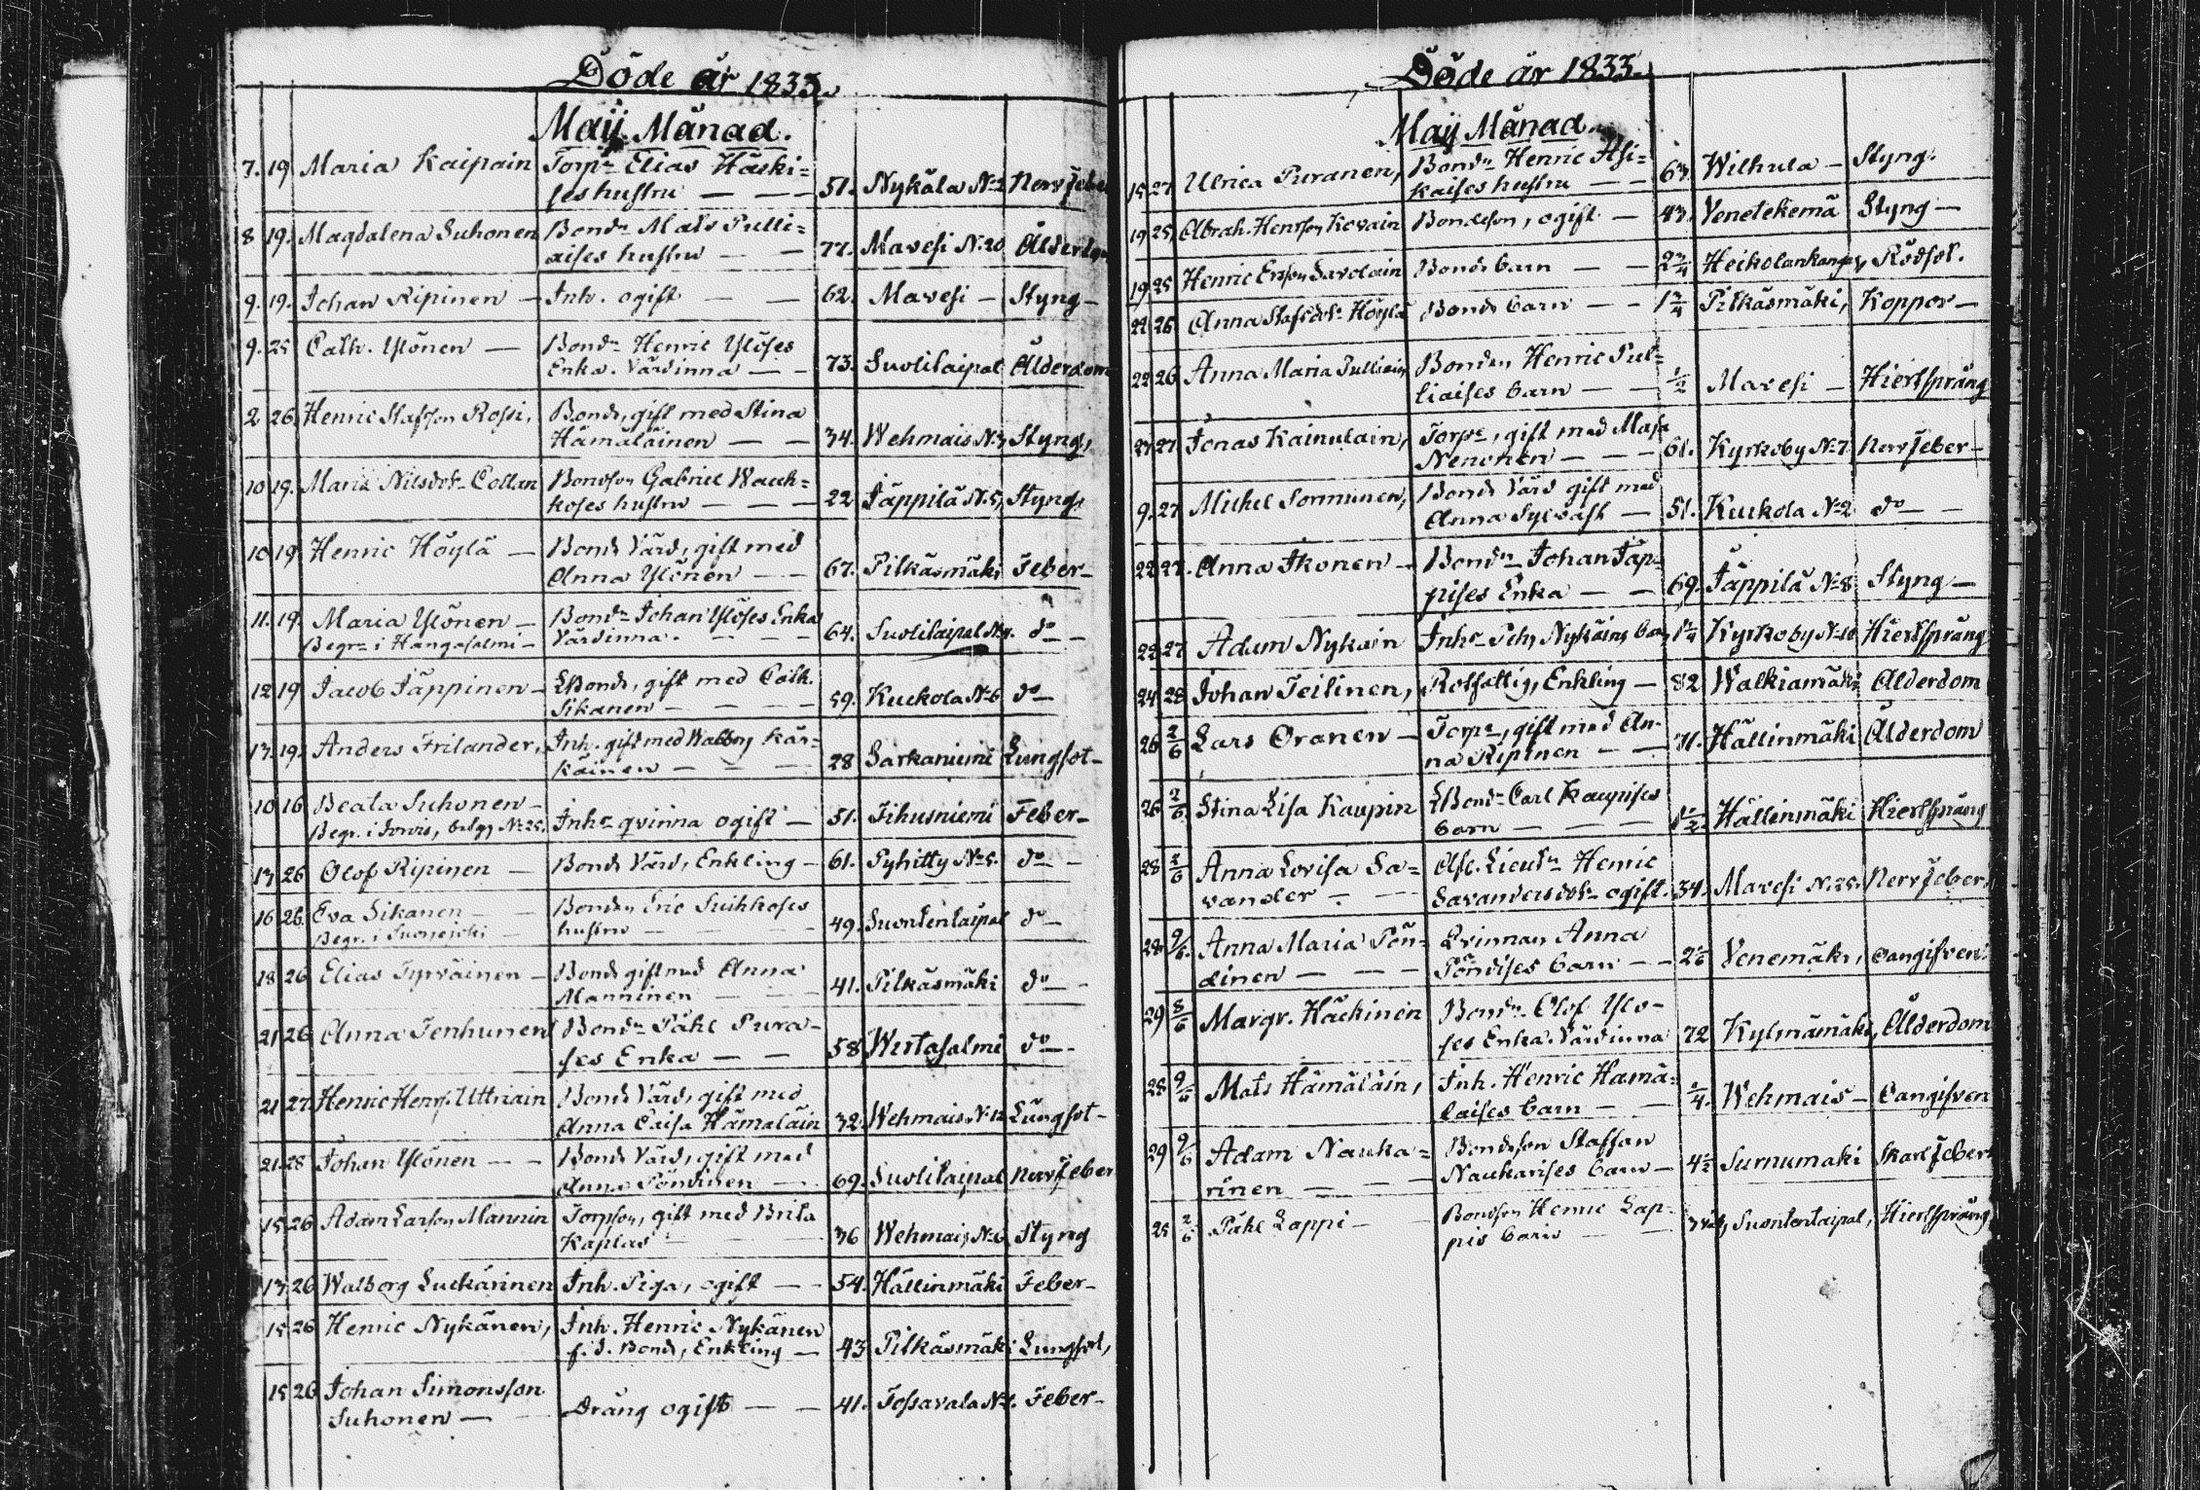 Döde år 1833.
Maij Månad.
7. 19 Maria Kaipain Torpn Elias Häski=
ses hustru — — 51. Nykäla No 2 Nervfeber
8 19. Magdalena Suhonen Bondn Mats Pulli=
aises hustru — — 77. Mavesi No 20 Ålderdom
9. 19. Johan Ripinen — Inh. ogift — — 62. Mavesi — Styng —
9. 25 Cath. Ylönen — Bondn Henric Ylöses
Enka. Värdinna — — 73. Suolilaipal Ålderdom
2 26. Henric Stafsson Rossi, Bond, gift med Stina
Hämäläinen — — 34. Wehmais No 3 Styng,
10 19. Maria Nilsdotr Collan Bondson Gabriel Wauh=
koses hustru — — 22. Jäppilä No 5, Styng,
10 19. Henric Höylä — Bond Värd, gift med
Anna Ylönen — — 67. Pilkäsmäki Feber —
11. 19. Maria Ylönen — Bondn Johan Ylöses Enka
Begrn i Hangasalmi — Värdinna. — — 64. Suolilaipal do —
12 19 Jacob Jäppinen — Bond, gift med Cath.
Sikanen — — 59. Kuckola No 6 do —
13. 19. Anders Frilander, Inh. gift med Walborg Kär=
käinen — — 28 Sarkaniemi Lungsot —
10 16 Beata Suhonen —
Begr. i Jorvis, betyg No 25. Inhs qvinna ogift — 51. Jihusniemi Feber —
13 26 Olof Ripinen — Bond Värd, Enkling — 61. Pyhitty No 5. do —
16 26. Eva Sikanen — Bonden Eric Suihkoses
Begr. i Suonejoki — hustru — — 49. Suontentaipal do —
18 26 Elias Tyrväinen — Bond gift med Anna
Manninen — — 41. Pilkäsmäki do —
21 26 Anna Tenhunen Bondn Påhl Pura-
ses Enka — — 58 Wirtasalmi do —
21 27 Henric Henrs. Uttriain Bond Värd, gift med
Anna Caisa Hämäläin 32. Wehmais No 12 Lungsot —
21. 28 Johan Ylönen — — Bond Värd, gift med
Anna Pöndinen — 69. Suolilaipal Nervfeber
15 26 Adam Larsson Mannin Torpson, gift med Brita
Kaplas — — 36 Wehmais No 6 Styng
13 26 Walborg Luckärinen Inh. Piga, ogift — — 54. Hällinmäki Feber —
15 26 Henric Nykänen, Inh. Henric Nykänen
f.d. Bond, Enkling — 43 Pilkäsmäki Lungsot,
15 26 Johan Simonsson
Suhonen — Dräng ogift — — 41. Tossavala No 1. Feber —
Döde år 1833.
Maij Månad.
15 27 Ulrica Puranen, Bondn Henric Asi=
kaises hustru — — 63. Wilhula — Styng.
19 25 Abrah. Henrsson Kovain Bondeson, ogift — 43. Venetekemä Styng —
19 25 Henric Ersson Savolain Bonds barn — — 2 3/4 Heikolankangas, Rödsot.
22 26 Anna Stafsdotr Höylä Bonds barn — — 1 3/4 Pilkäsmäki, Koppor —
22 26 Anna Maria Pulliain Bonden Henric Pul=
liaises barn — — 1/2 Mavesi — Hiertsprång
23 27 Jonas Kainulain, Torpr, gift med Maja
Nenonen — — — 61. Kyrkoby No 7 Nervfeber —
9. 27 Michel Sormunen, Bond Värd gift med
Anna Sylvast — 51. Kuckola No 2 do —
22 27. Anna Ikonen — Bondn Johan Jäp=
pises Enka — — 69. Jäppilä No 8 Styng —
22 27 Adam Nykäin Inhr Pehr Nykäins barn, 1 1/4 Kyrkoby No 10 Hiertsprång
24 28 Johan Teilinen, Rotfattig, Enkling — 82 Walkiamäki Ålderdom
26 2/6 Lars Oranen — Torpr, gift med An-
na Ripinen — — 71. Hällinmäki Ålderdom
26 2/6 Stina Lisa Kaupin Bondn Carl Kaupises
barn — — — 1 1/2. Hällinmäki Hiertsprång
28 2/6 Anna Lovisa Sa= Afl. Lieutn Henric
vander — — Savanders dotr ogift. 34. Mavesi No 25. Nervfeber.
28 9/6. Anna Maria Pön= Qvinnan Anna
dinen — — — Pöndises barn — — Venemäki, oangifven.
29 8/6 Margr. Häckinen Bondn Olof Ylö-
ses Enka. Värdinna 72 Kylmämäki, Ålderdom
28 9/6 Mats Hämäläin, Inh. Henric Hämä=
läises barn — — 1/4. Wehmais — Oangifven
29 9/6 Adam Nauka= Bondsson Staffan
rinen — — — Naukarises barn — 4 1/2 Surnumäki Skarlfeber
25 2/6 Påhl Lappi — Bondson Henric Lap-
pis barn — — Suontentaipal, Hiertsprång